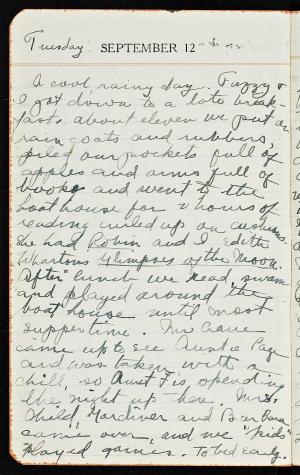 Tuesday. SEPTEMBER 12
A cool, rainy day. Fuzzy &
I got down to a late break-
fast. about eleven we put on
rain coats and rubbers,
piled our pockets full of
apples and arms full of
books and went to the
boat house for 2 hours of
reading curled up on cushions.
She had Robin and I Edith
Wharton's Glimpses of the Moon.
After lunch we read, swam
and played around the
boat house until most
supper time. Mr.
came up to see Auntie
and was taken with a
chill, so Aunt F is spending
the night up here. Mrs.
Child, and Barbara
came over, and we "kids"
played games. To bed early.